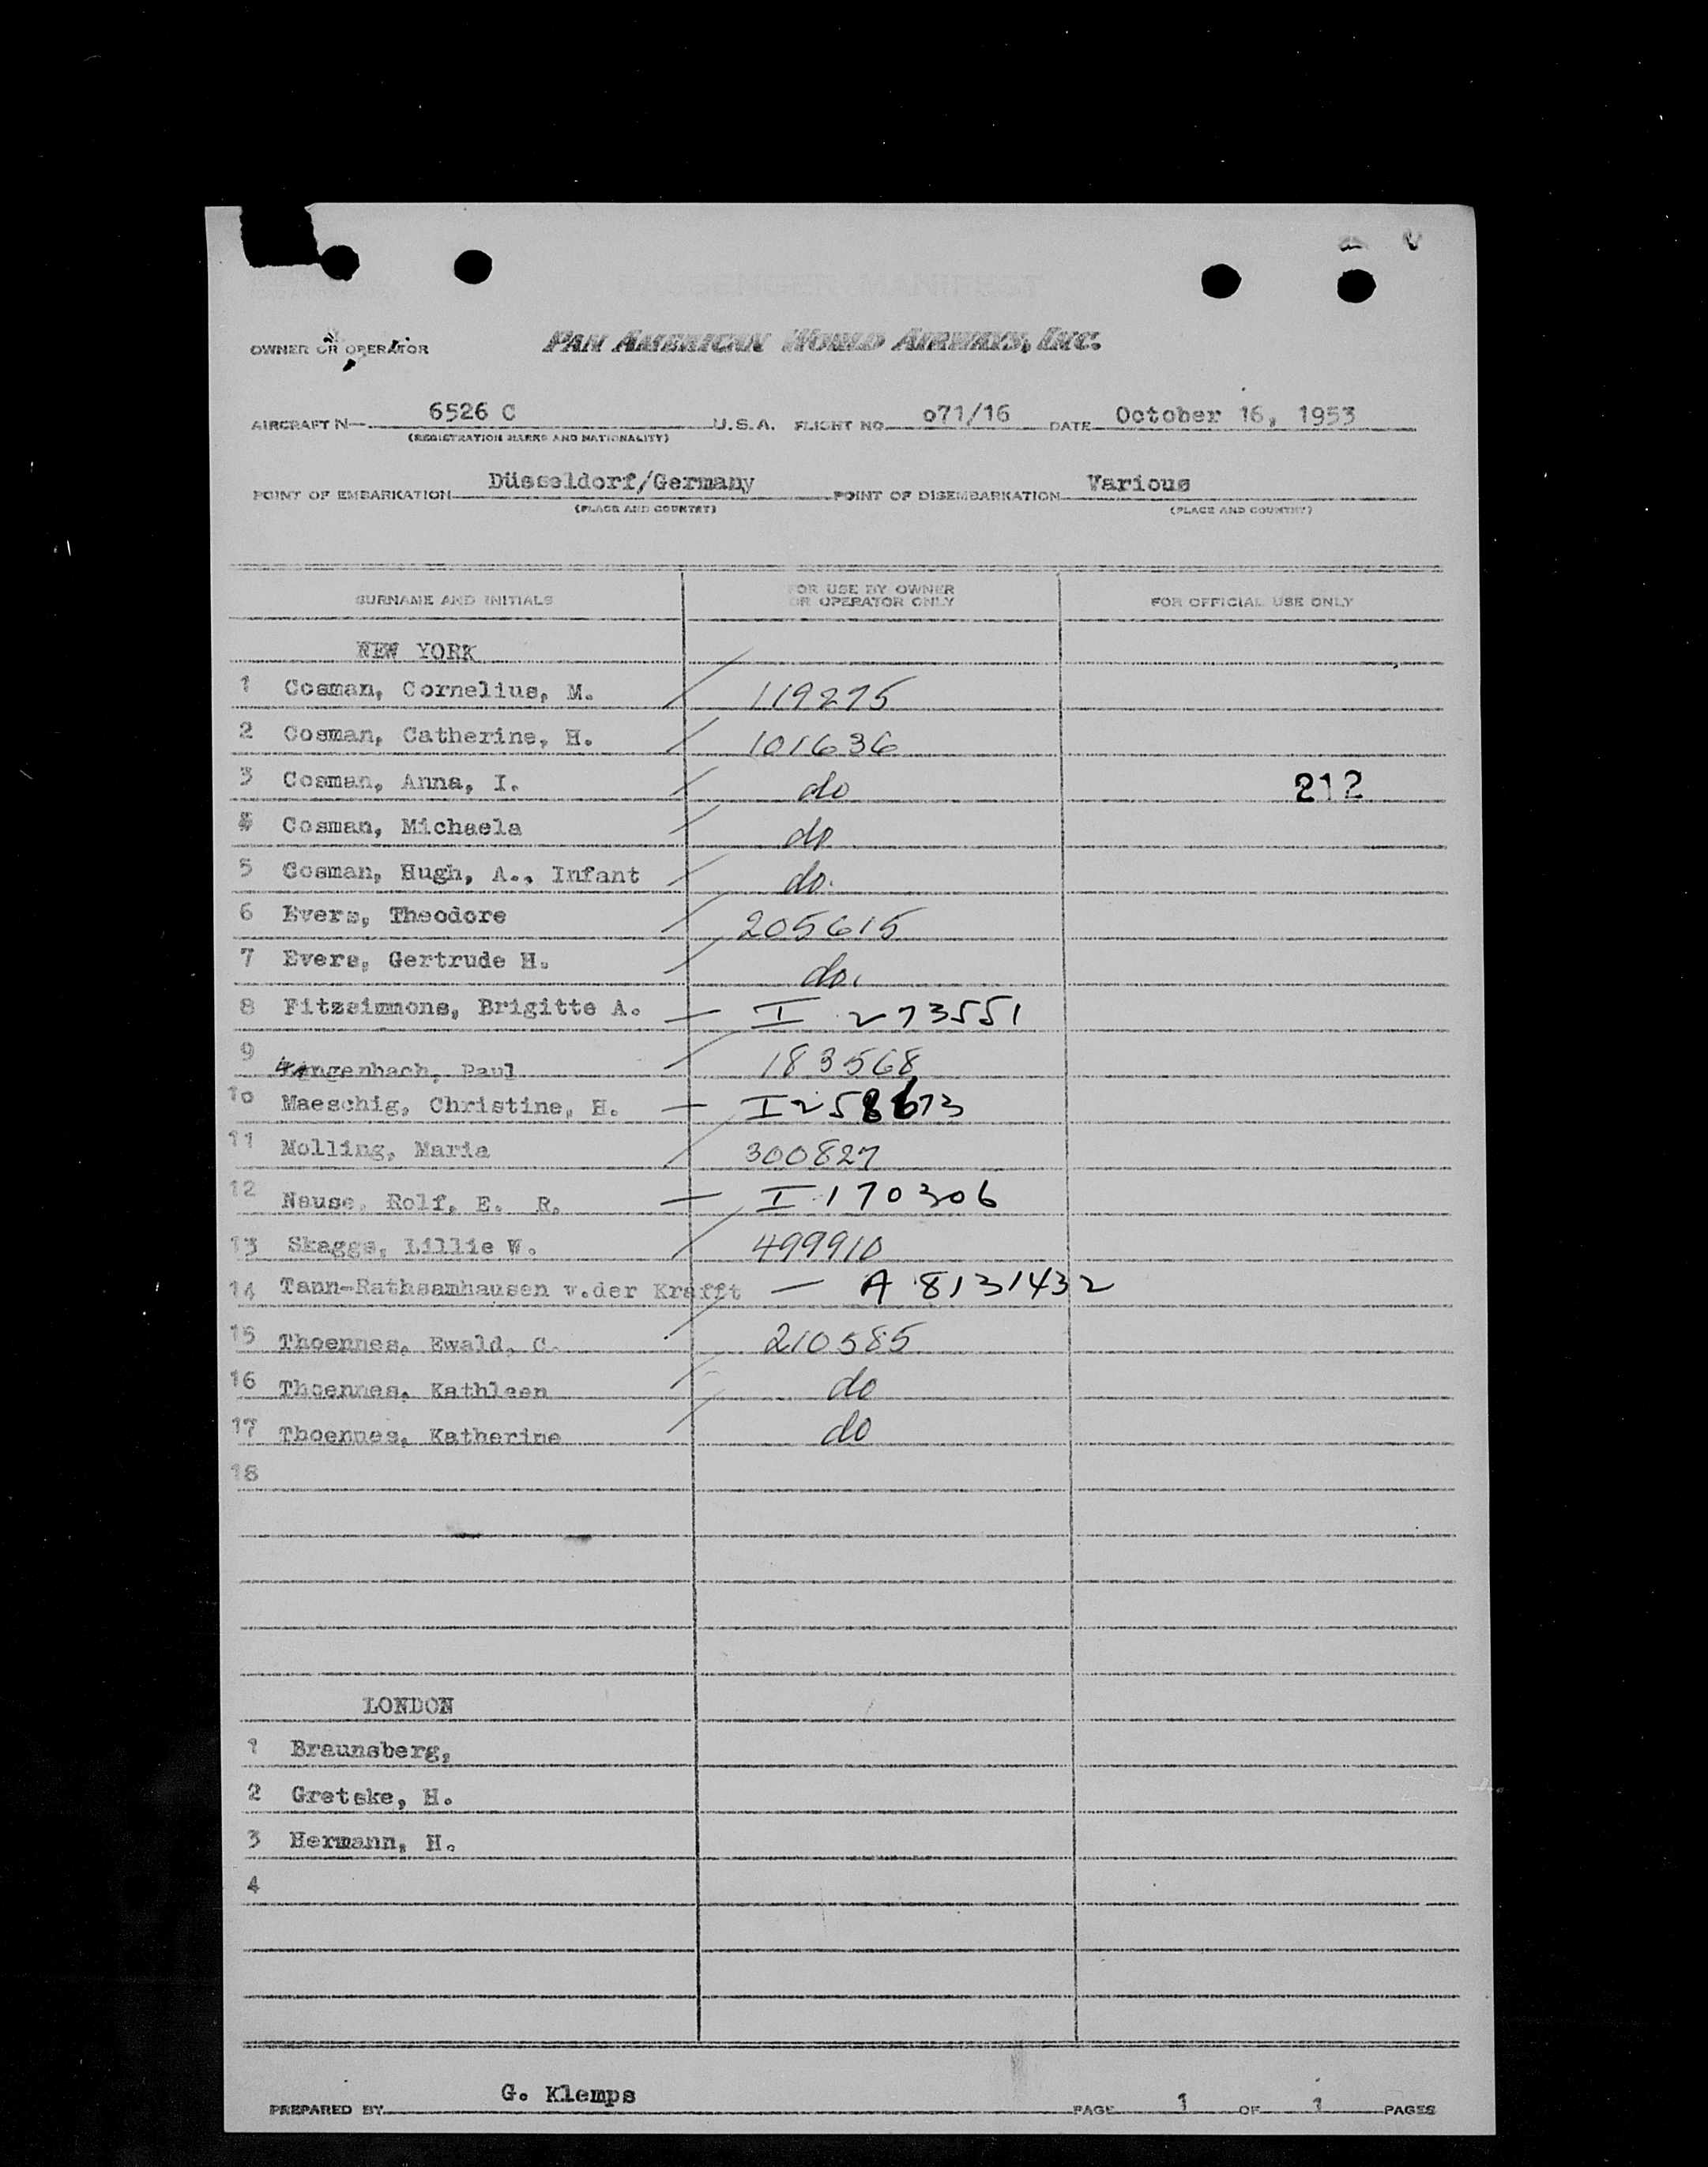 OWNER OR OPERATOR PAN AMERICAN WORLD AIRWAYS, INC.
AIRCRAFT N— 6526 C U.S.A. FLIGHT NO. o71/16 DATE October 16, 1953
(REGISTRATION MARKS AND NATIONALITY)
POINT OF EMBARKATION Düsseldorf/Germany POINT OF DISEMBARKATION Various
(PLACE AND COUNTRY) (PLACE AND COUNTRY)
SURNAME AND INITIALS FOR USE BY OWNER OR OPERATOR ONLY FOR OFFICIAL USE ONLY
NEW YORK
1 Cosman, Cornelius, M. 119275
2 Cosman, Catherine, H. 101636
3 Cosman, Anna, I. do 212
4 Cosman, Michaela do
5 Cosman, Hugh, A., Infant do.
6 Evers, Theodore 205615
7 Evers, Gertrude H. do.
8 Fitzsimmons, Brigitte A. — I 273551
9 Paul 183568
10 Maeschig, Christine, H. — I 258673
11 Molling, Maria 300827
12 Nause, Rolf, E. R. — I 170306
13 Skaggs, Lillie W. 499910
14 Tann-Rathsamhausen v.der Krafft — A 8131432
15 Thoennes, Ewald, C. 210585
16 Thoennes, Kathleen do
17 Thoennes, Katherine do
18
LONDON
1 Braunsberg,
2 Gretske, H.
3 Hermann, H.
4
PREPARED BY G. Klemps PAGE 1 OF 1 PAGES